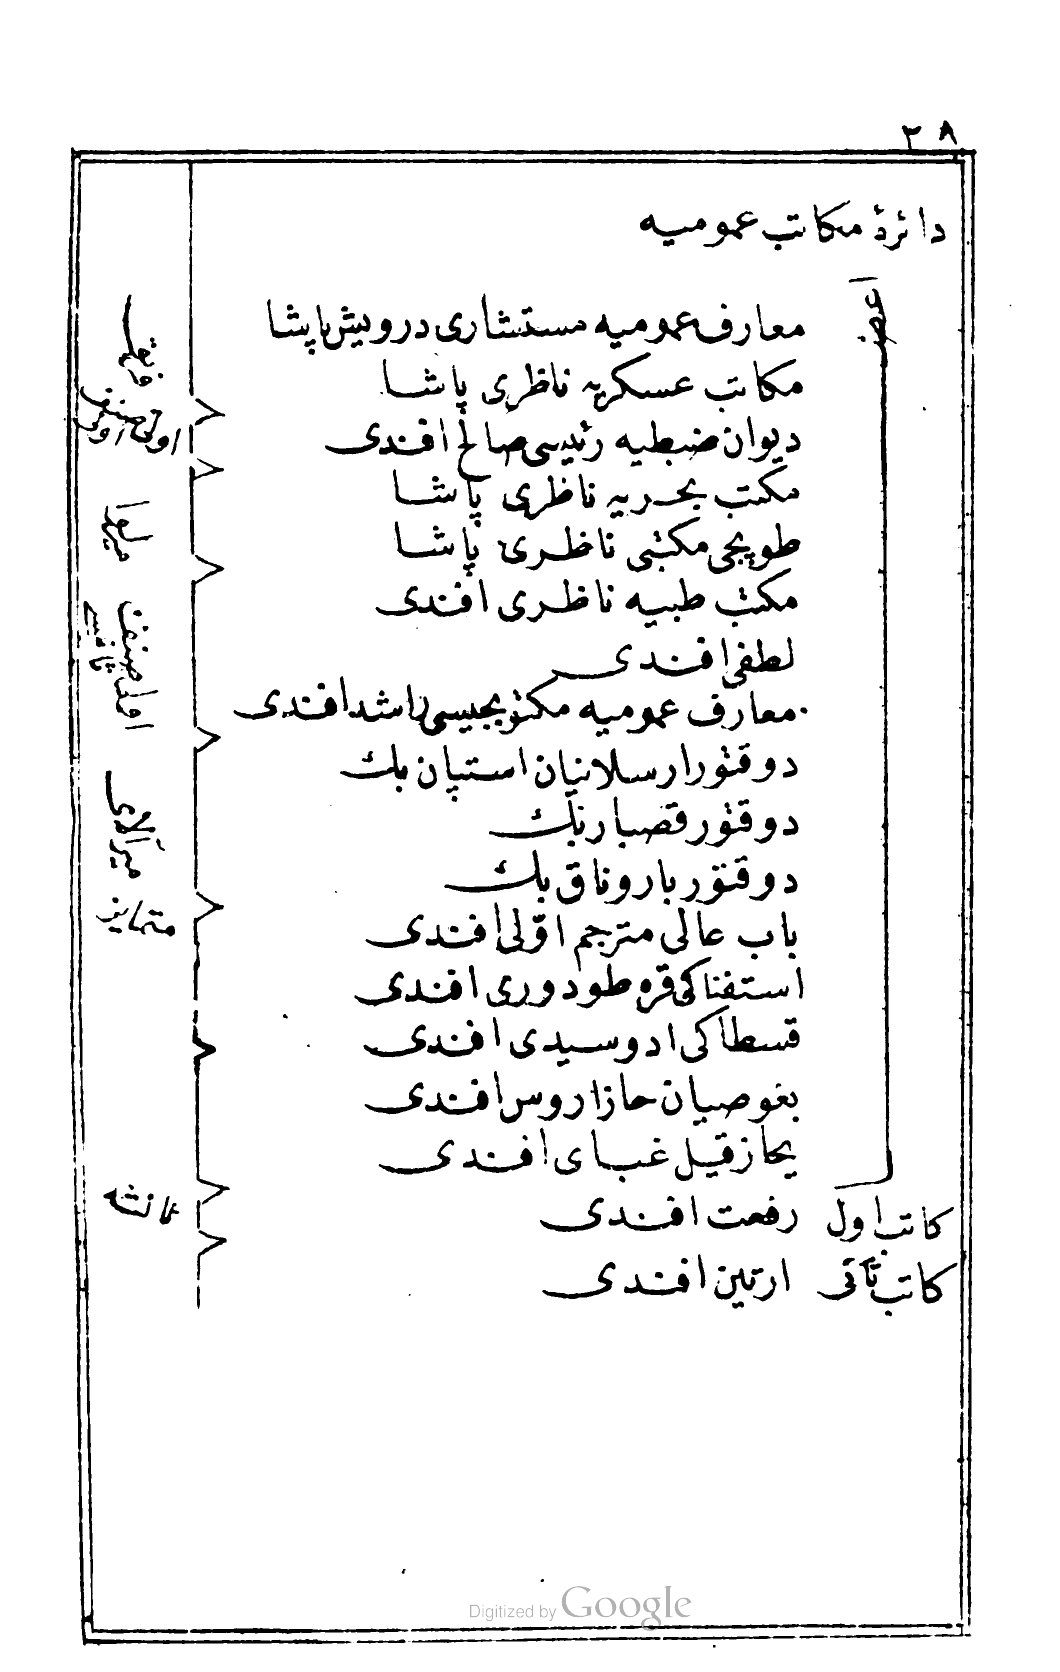 ٣٨
دائرۀ مكاتب عموميه
اعضا
معارف عموميه مستشارى درويش پاشا
مكاتب عسكريه ناظرى پاشا
ديوان ضبطيه رئيسى صالح افندى
مكتب بحريه ناظرى پاشا
طوپجى مكتبى ناظرى پاشا
مكتب طبيه ناظرى افندى
لطفى افندى
معارف عموميه مكتوبجيسى راشد افندى
دوقتور ارسلانيان استپان بك
دوقتور قصبار بك
دوقتور باروناق بك
باب عالى مترجم اولى افندى
استفناكى قره طودورى افندى
قسطاكى ادوسيدى افندى
بغوصيان حازاروس افندى
يحازقيل غباى افندى
كاتب اول رفعت افندى
كاتب ثانى ارتين افندى
فريق
اولى صنف اولى
ميرلوا
اولى صنف ثانيسى
ميرآلاى
متمايز
ثالثه
Digitized by Google